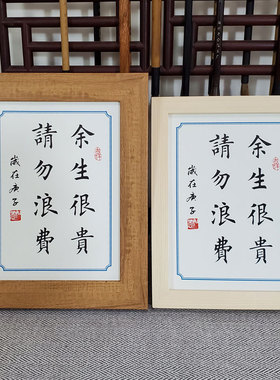 余生很貴
請勿浪費
歲在庚子
余生很貴
請勿浪費
歲在庚子